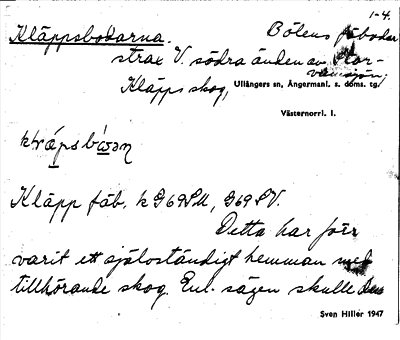 1-4.
Kläppsbodarna. Bölens fäbodar
strax V. södra änden av Stor-
varsjön,
Kläpps skog, Ullångers sn, Ångermanl. s. doms. tg.
Västernorrl. l.
Kläpp fäb. k G69SM, G69SV.
Detta har förr
varit ett självständigt hemman med
tillhörande skog. Enl. sägen skulle den
Sven Hillér 1947